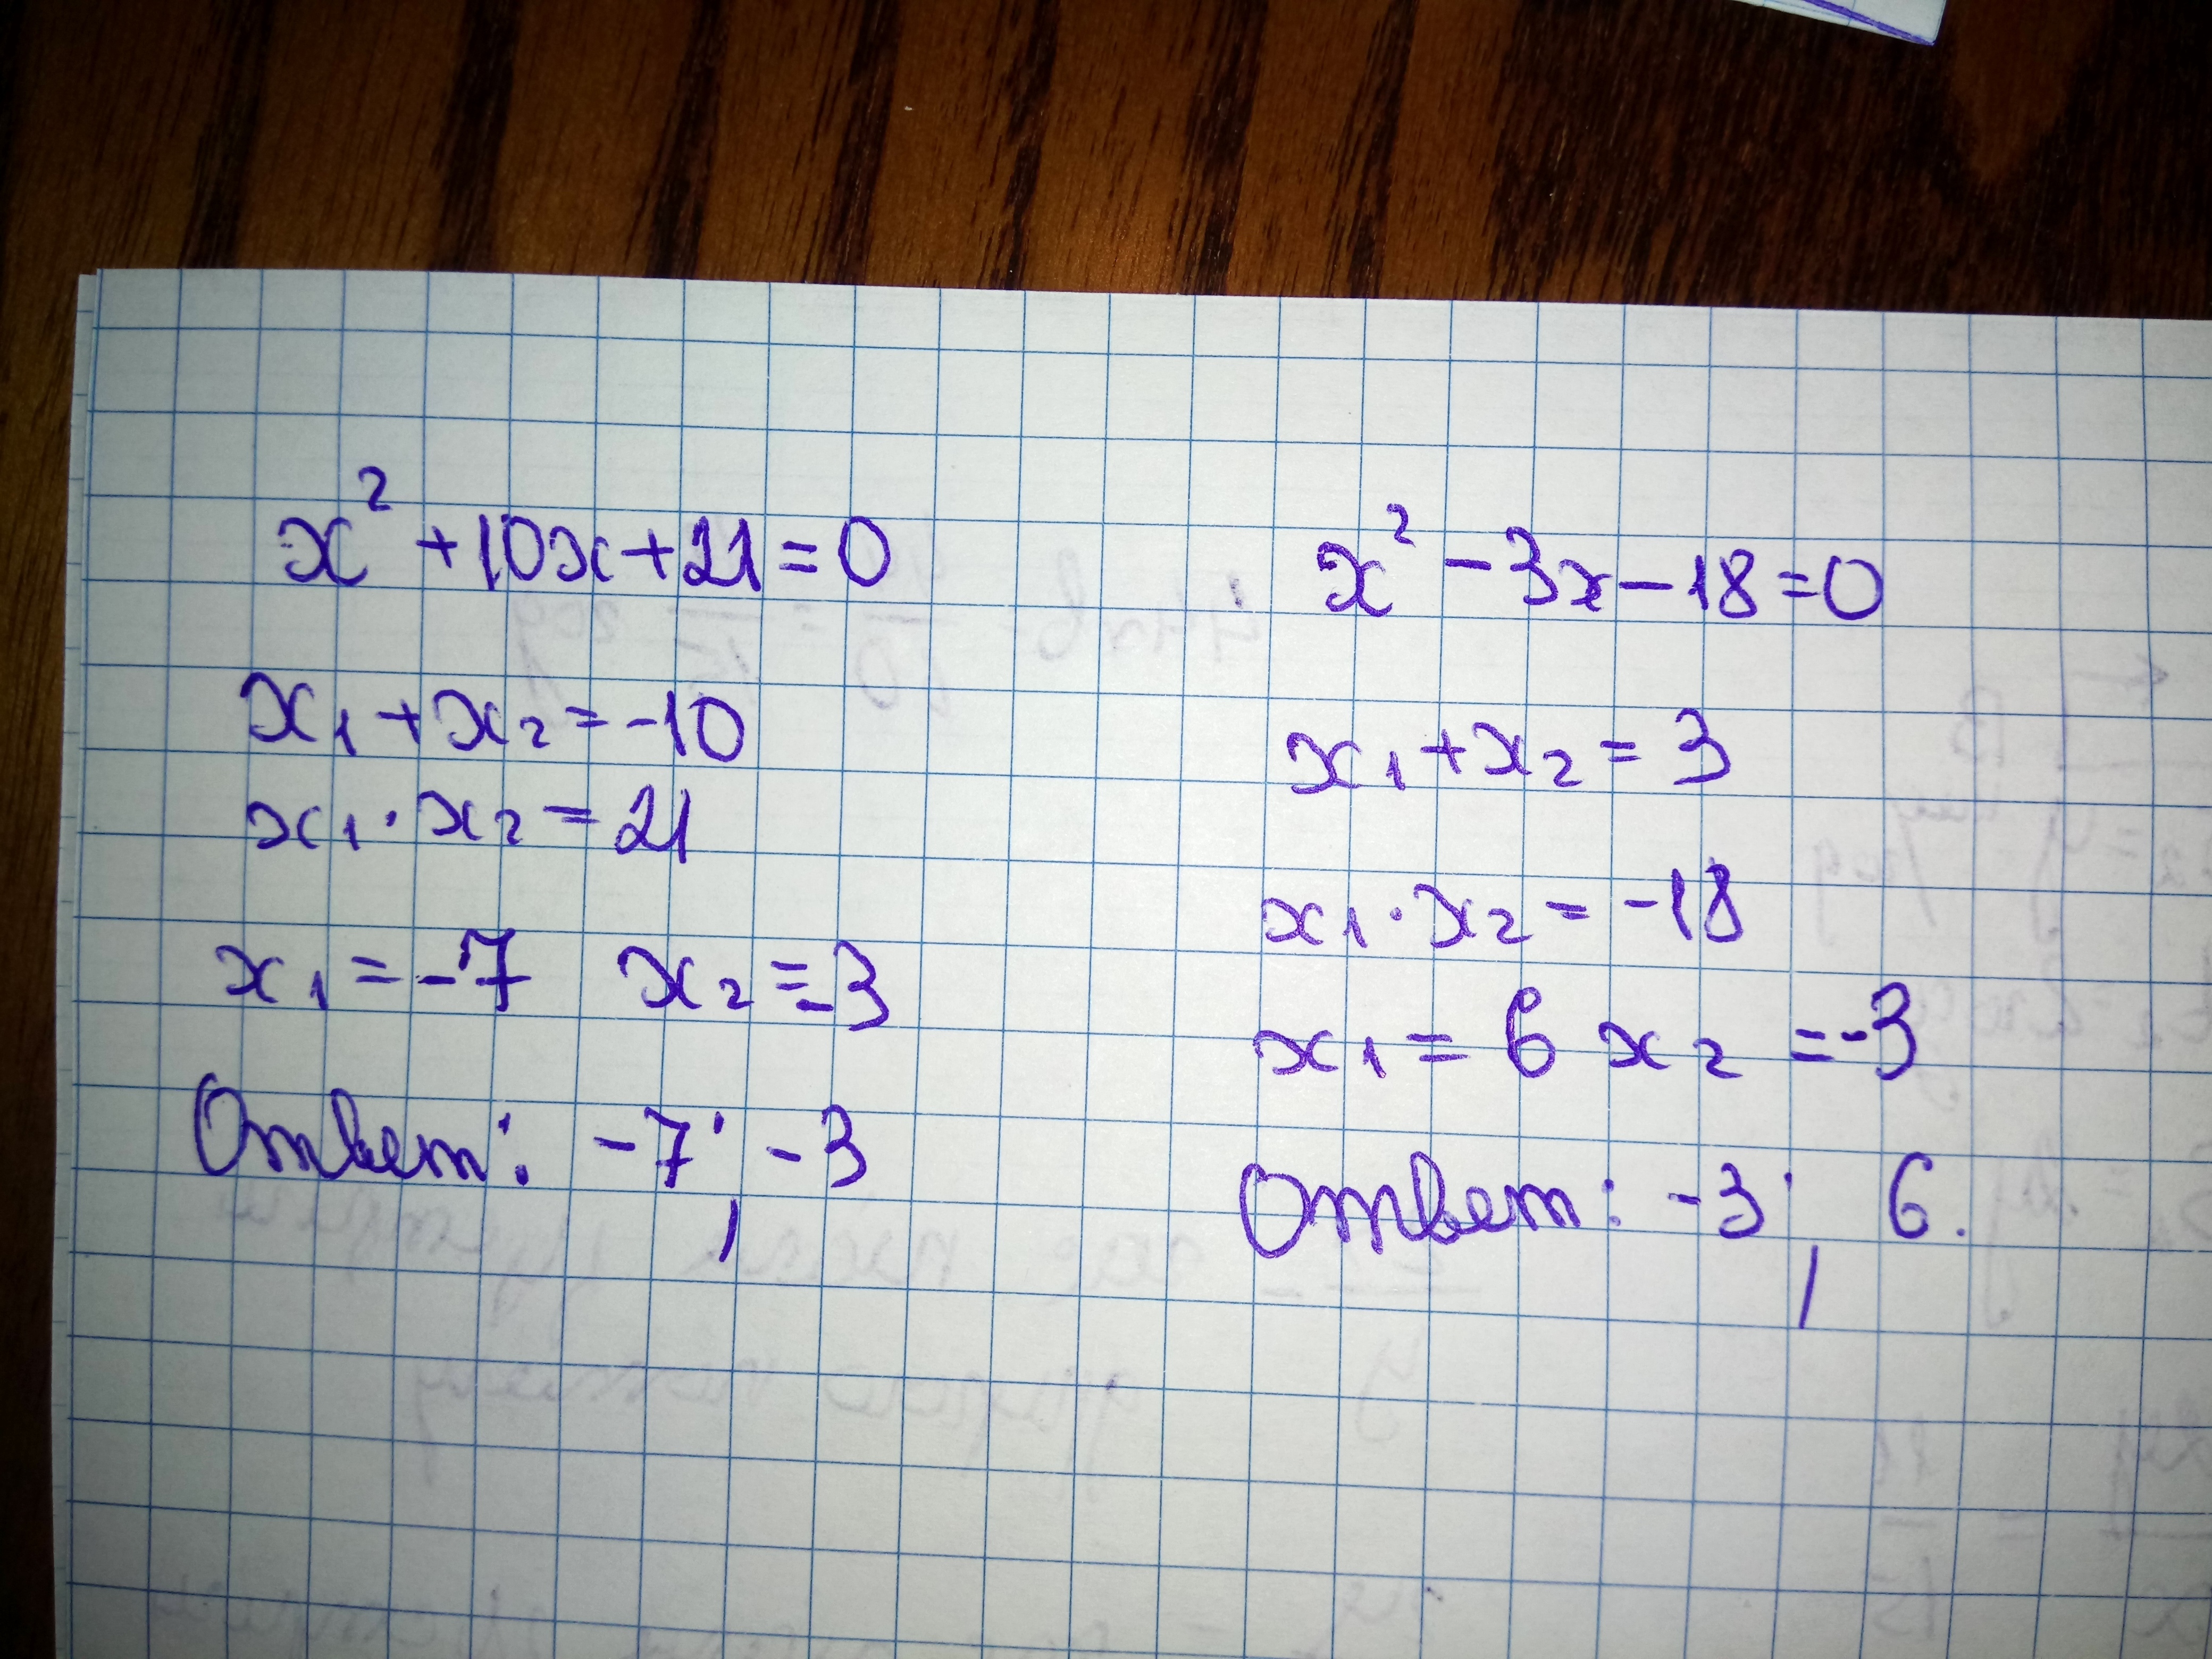 x² + 10x + 21 = 0
x₁ + x₂ = -10
x₁ · x₂ = 21
x₁ = -7 x₂ = -3
Ответ: -7; -3
x² - 3x - 18 = 0
x₁ + x₂ = 3
x₁ · x₂ = -18
x₁ = 6 x₂ = -3
Ответ: -3; 6.